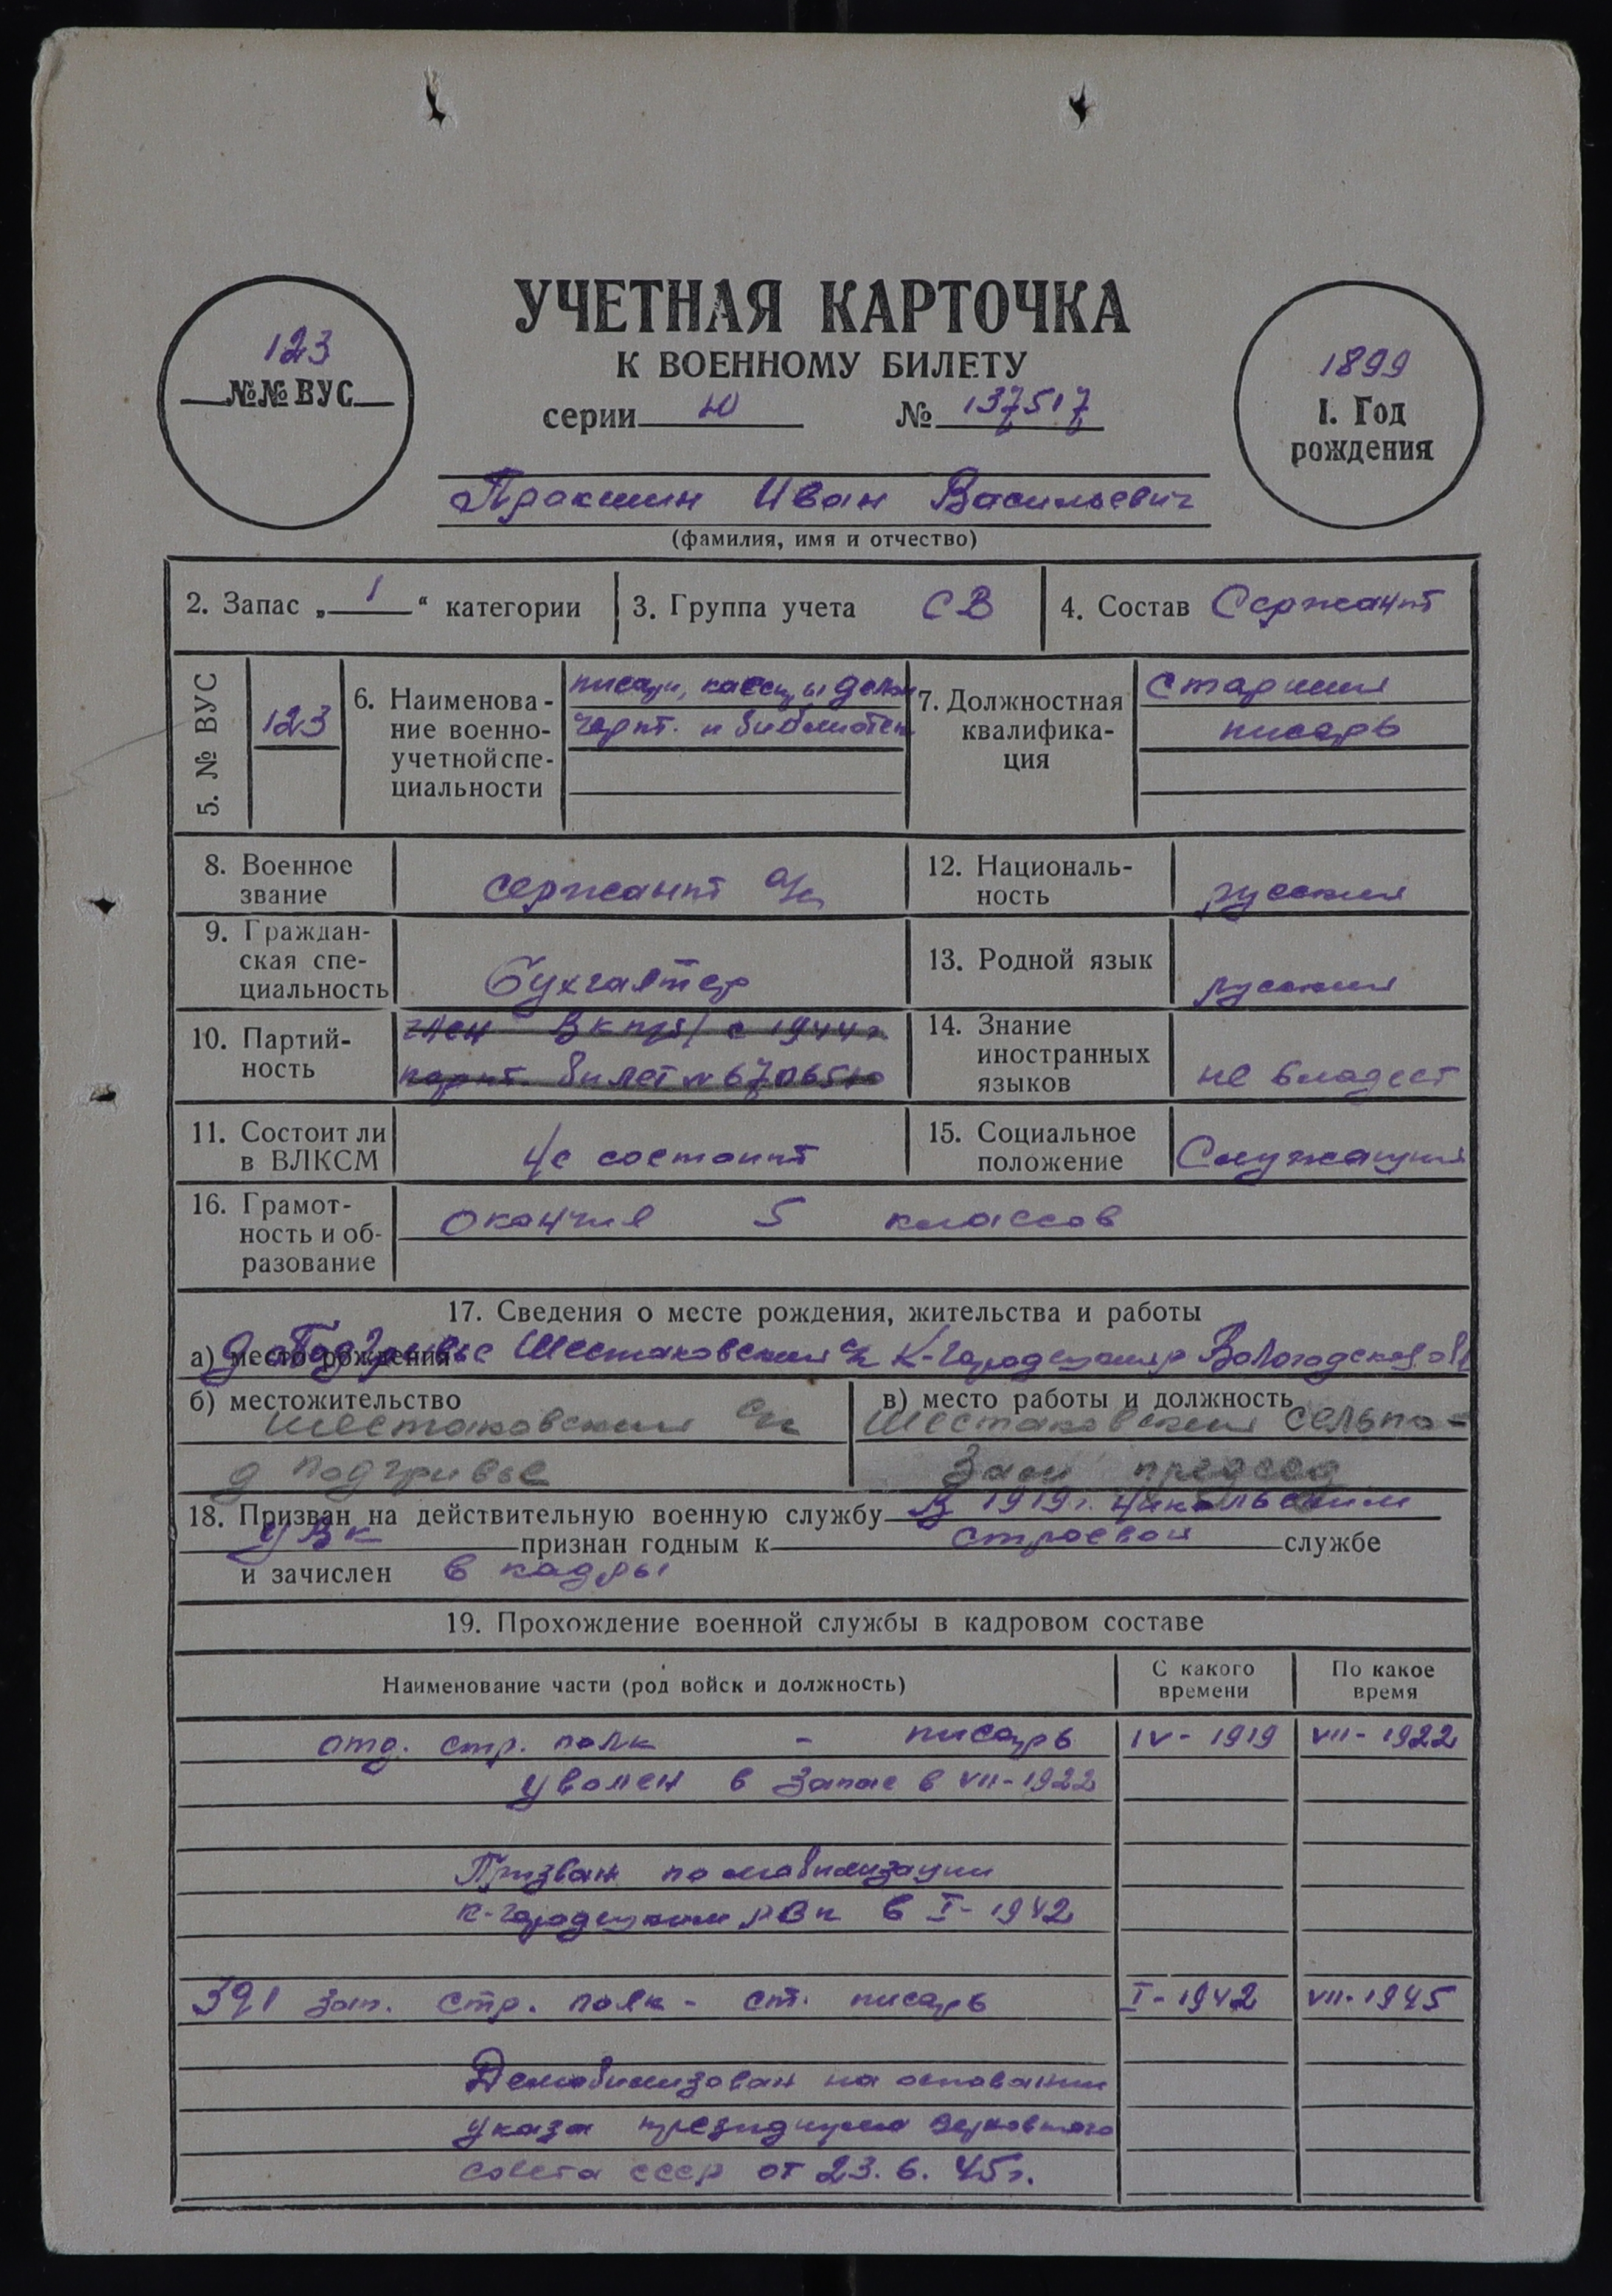 123
№№ ВУС
УЧЕТНАЯ КАРТОЧКА
К ВОЕННОМУ БИЛЕТУ
серии Ю № 137517
1899
1. Год
рождения
Пракшин Иван Васильевич
(фамилия, имя и отчество)
2. Запас „ 1 “ категории
3. Группа учета СВ
4. Состав Сержант
5. № ВУС
123
6. Наименова-
ние военно-
учетной спе-
циальности
писари, кассиры делоп
черт. и библиотек
7. Должностная
квалифика-
ция
Старший
писарь
8. Военное
звание
сержант а/с
9. Граждан-
ская спе-
циальность
бухгалтер
10. Партий-
ность
член ВКП/б/ с 1944 г.
парт. билет № 6706510
11. Состоит ли
в ВЛКСМ
Не состоит
12. Националь-
ность
русский
13. Родной язык
русский
14. Знание
иностранных
языков
не владеет
15. Социальное
положение
Служащий
16. Грамот-
ность и об-
разование
окончил 5 классов
17. Сведения о месте рождения, жительства и работы
а) место рождения д Подгривье Шестаковский с/с К-Городецкий р Вологодской обл
б) местожительство
Шестаковский с/с
д Подгривье
в) место работы и должность
Шестаковский сельпо -
Зам председ
18. Призван на действительную военную службу В 1919 г. Никольским
УВК признан годным к строевой службе
и зачислен в кадры
19. Прохождение военной службы в кадровом составе
Наименование части (род войск и должность)
С какого
времени
По какое
время
отд. стр. полк - писарь IV - 1919 VII - 1922
уволен в запас в VII - 1922
Призван по мобилизации
К-Городецким РВК в I - 1942
391 зап. стр. полк - ст. писарь I - 1942 VII - 1945
Демобилизован на основании
указа президиума Верховного
совета СССР от 23.6.45 г.